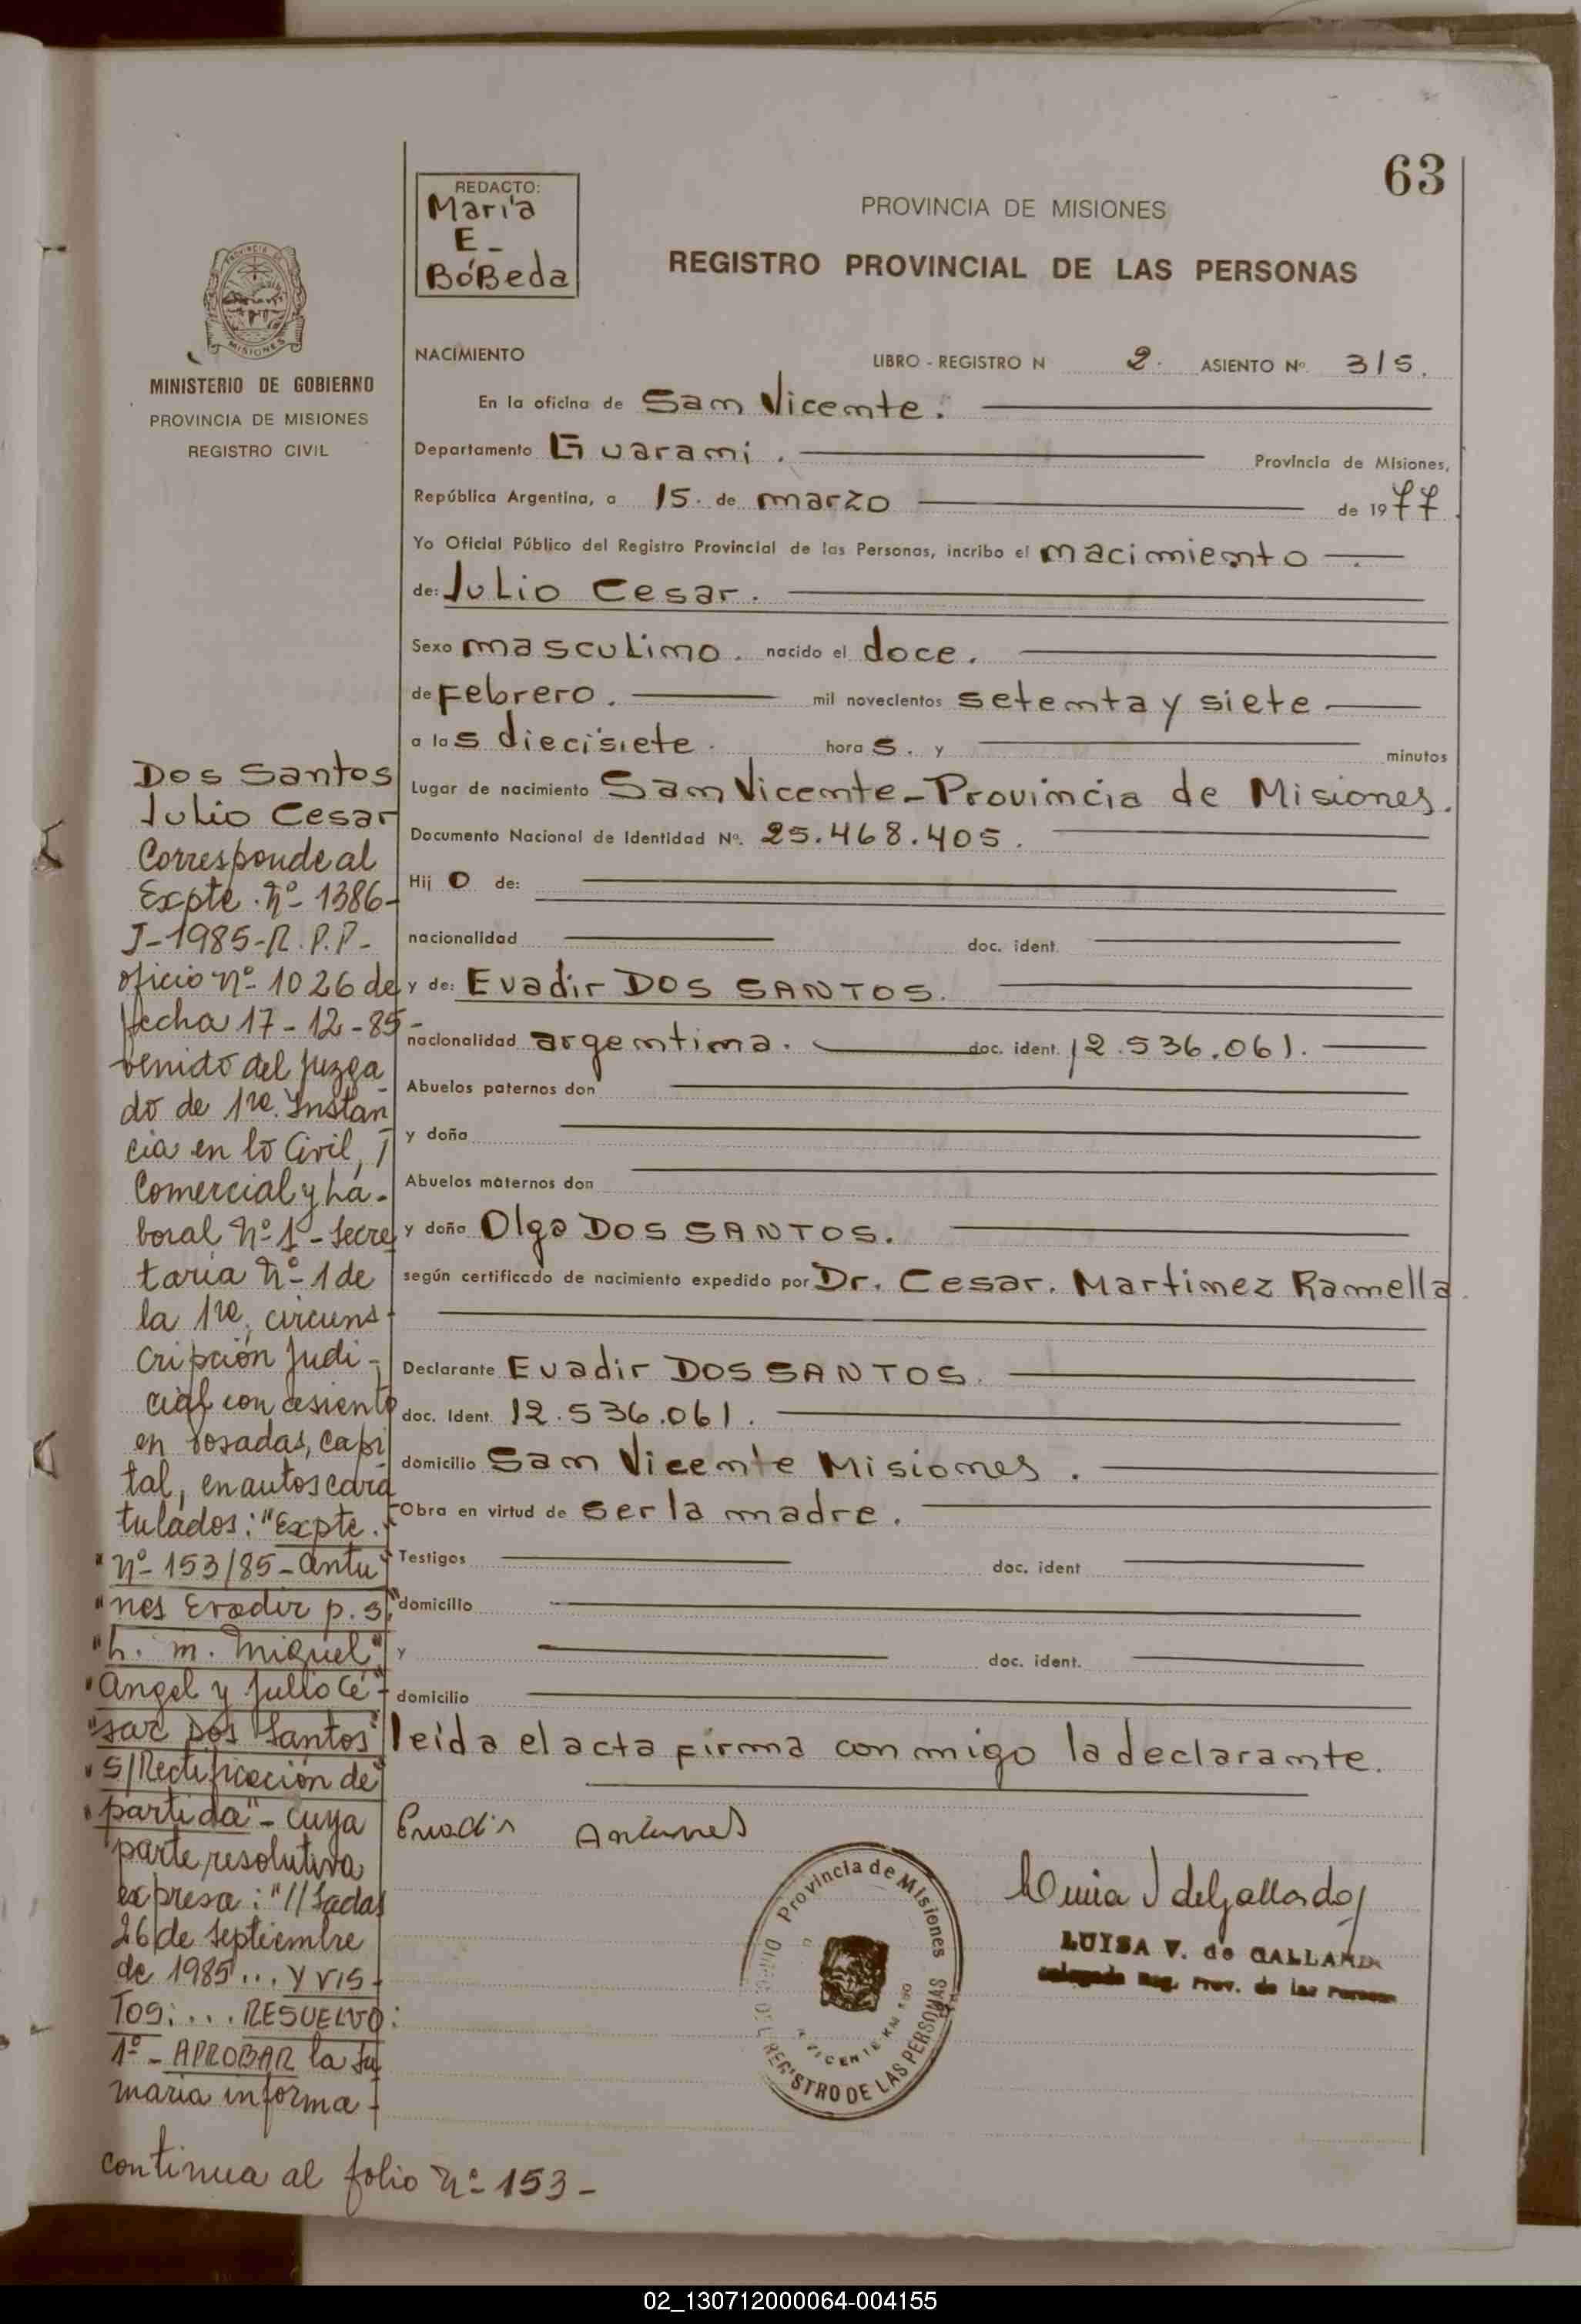 63
REDACTO:
María
E_
BóBeda
PROVINCIA DE MISIONES
REGISTRO PROVINCIAL DE LAS PERSONAS
MISIONES
MINISTERIO DE GOBIERNO
PROVINCIA DE MISIONES
REGISTRO CIVIL
NACIMIENTO LIBRO - REGISTRO N 2. ASIENTO Nº. 315.
En la oficina de San Vicente.
Departamento Guarani. Provincia de Misiones,
República Argentina, a 15. de marzo de 1977.
Yo Oficial Público del Registro Provincial de las Personas, incribo el nacimiento
de: Julio Cesar.
Sexo masculino. nacido el doce.
de Febrero. mil novecientos setenta y siete
a las diecisiete. horas. y minutos
Lugar de nacimiento San Vicente - Provincia de Misiones.
Documento Nacional de Identidad Nº. 25.468.405.
Hijo de:
nacionalidad doc. ident.
y de: Evadir DOS SANTOS.
nacionalidad argentina. doc. ident. 12.536.061.
Abuelos paternos don
y doña
Abuelos maternos don
y doña Olga DOS SANTOS.
según certificado de nacimiento expedido por Dr. Cesar. Martinez Ramella.
Declarante Evadir DOS SANTOS.
doc. Ident. 12.536.061.
domicilio San Vicente Misiones.
Obra en virtud de ser la madre.
Testigos doc. ident
domicilio
y doc. ident.
domicilio
leida el acta firma conmigo la declarante.
Evadir Antunes
LUISA V. de GALLARD
Reg. Prov. de las Person
Provincia de Misiones
REGISTRO DE LAS PERSONAS
Dos Santos
Julio Cesar
Corresponde al
Expte. Nº 1386-
J-1985-R.P.P-
oficio Nº 1026 de
fecha 17-12-85-
venido del juzga
do de 1ra. Instan
cia en lo Civil,
Comercial y La-
boral Nº 1 - Secre
taria Nº 1 de
la 1ra. circuns-
cripción Judi-
cial con asiento
en Posadas, Capi
tal, en autos cara
tulados: "Expte.
"Nº 153/85 - Antu
"nes Evadir p. s.
"h. m. Miguel"
"Angel y Julio Cé"
"sar Dos Santos"
"S/Rectificación de"
"partida" - cuya
parte resolutiva
expresa: "//sadas
26 de septiembre
de 1985... Y VIS-
TOS:... RESUELVO:
1º- APROBAR la su
maria informa-
continua al folio Nº 153-
02_130712000064-004155